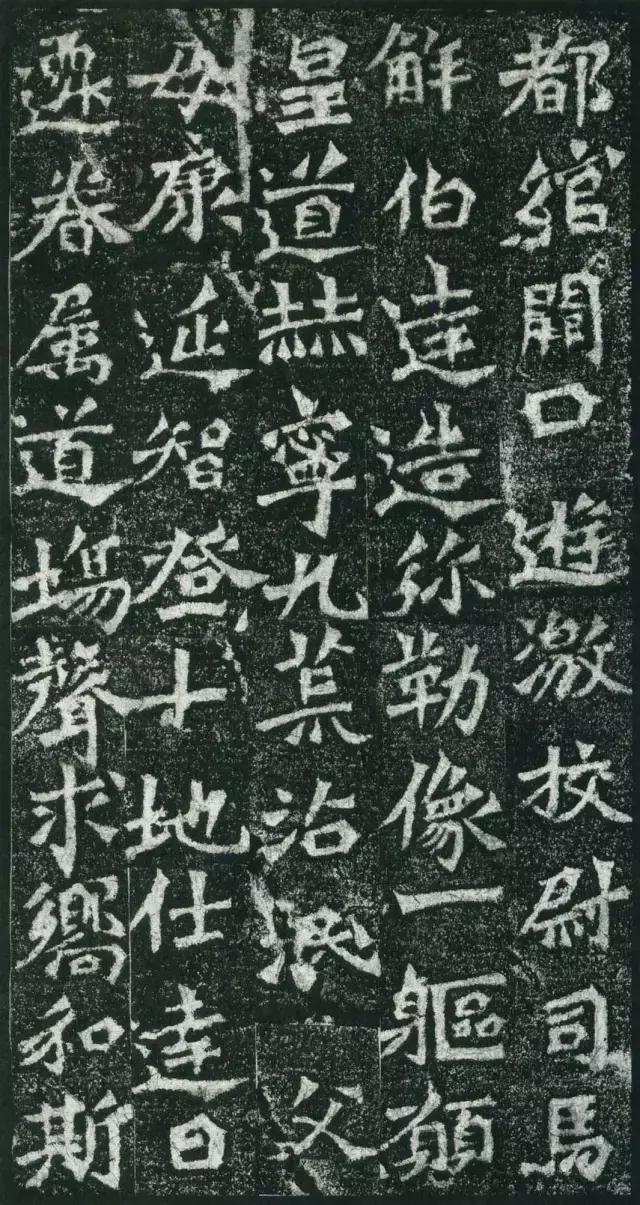 都綰闕口遊激校尉司馬
解伯達造弥勒像一軀願
皇道赫寧九荒沾泯父
母康延智登十地仕達日
遷眷属道場聲求嚮和斯